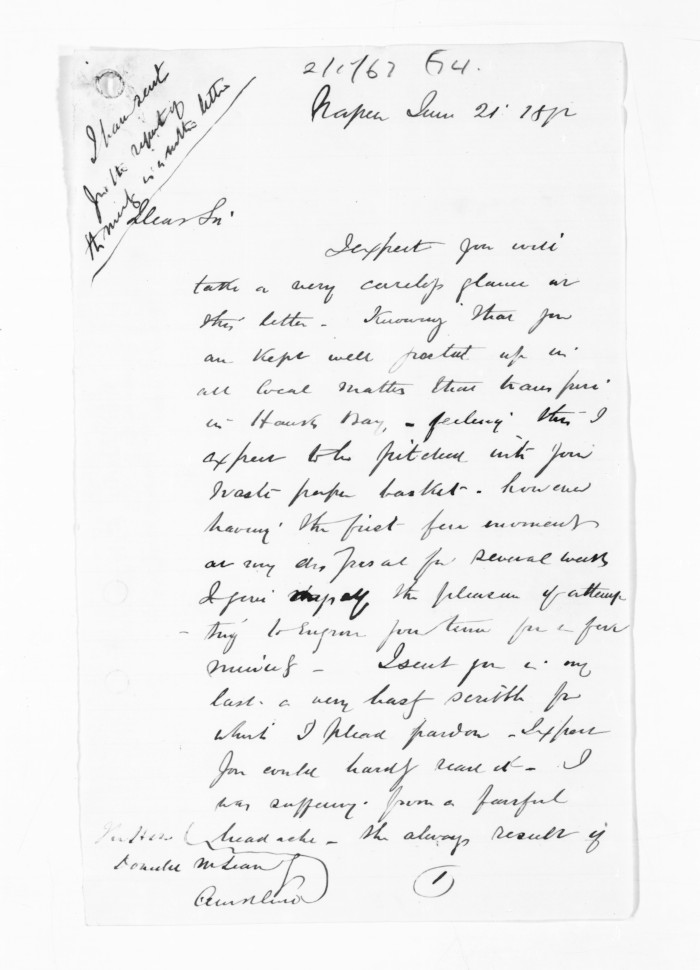 I have sent
for the report of
the minutes in another letter
Napier June 21 187
Dear Sir
I expect you will
take a very careless glance at
this letter - Knowing that you
are kept well posted up in
all local matters that transpire
in Hawks Bay, - feeling this I
expect to be pitched into your
Waste paper basket - however
having the first few moments
at my disposal for several weeks
I give myself the pleasure of attemp
-ting to Engross your time for a few
minutes - I sent you in my
last - a very hasty scribble for
which I plead pardon - I expect
you could hardly read it - I
was suffering from a fearful
headache - the always result of
The Hon
Donald McLean
Auckland
1